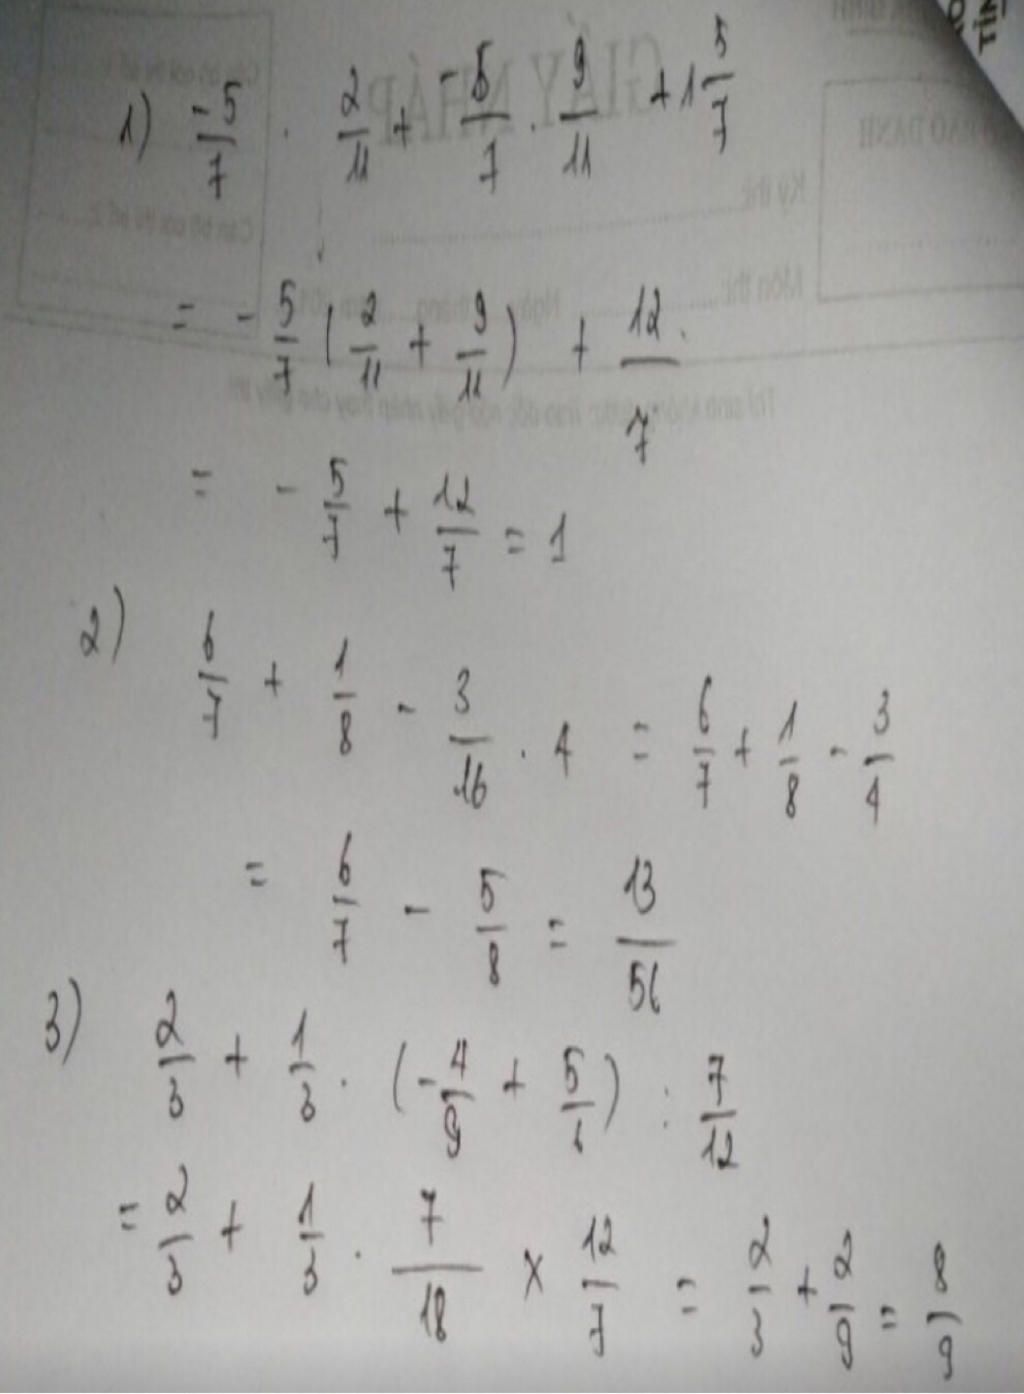 1) -5/7 . 2/11 + -5/7 . 9/11 + 1 5/7
= - 5/7 ( 2/11 + 9/11 ) + 12/7
= - 5/7 + 12/7 = 1
2) 6/7 + 1/8 - 3/16 . 4 = 6/7 + 1/8 - 3/4
= 6/7 - 5/8 = 13/56
3) 2/3 + 1/3 . ( - 4/9 + 5/6 ) : 7/12
= 2/3 + 1/3 . 7/18 x 12/7 = 2/3 + 2/9 = 8/9